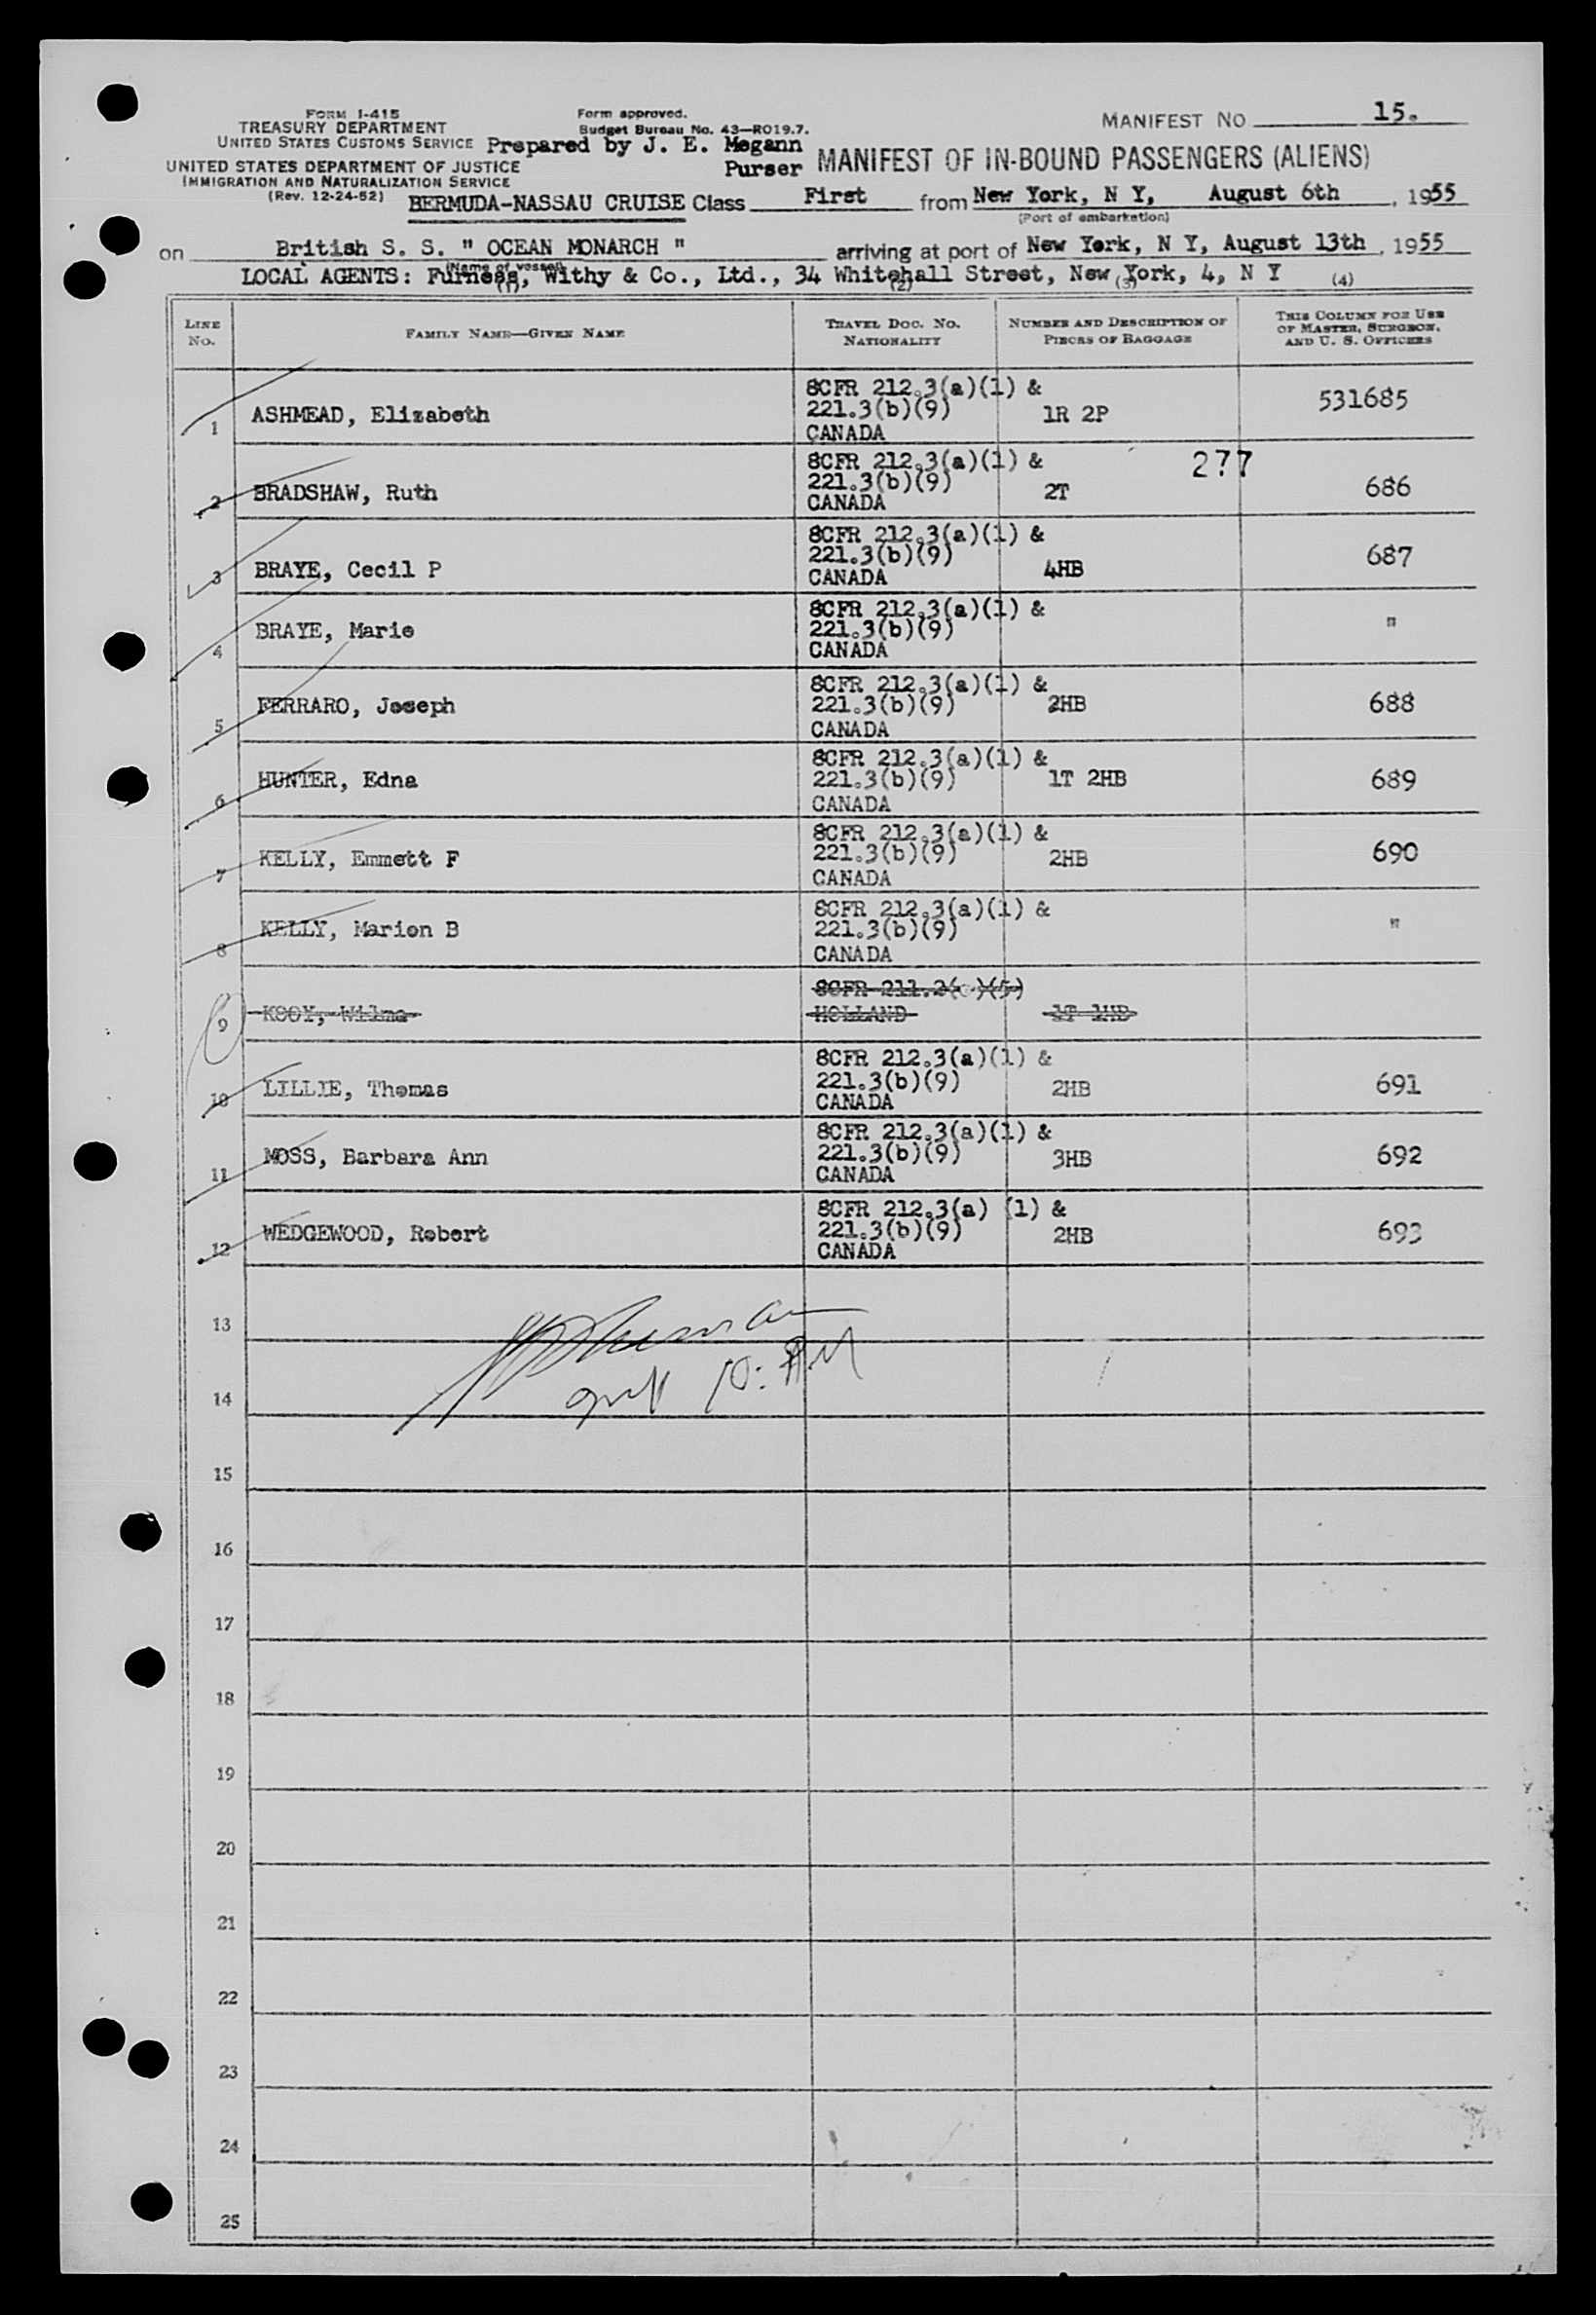 FORM I-415
TREASURY DEPARTMENT
UNITED STATES CUSTOMS SERVICE
UNITED STATES DEPARTMENT OF JUSTICE
IMMIGRATION AND NATURALIZATION SERVICE
(Rev. 12-24-52)
Form approved.
Budget Bureau No. 43—R019.7.
Prepared by J. E. Megann
Purser
MANIFEST NO 15.
MANIFEST OF IN-BOUND PASSENGERS (ALIENS)
BERMUDA-NASSAU CRUISE Class First from New York, N Y, August 6th, 1955
(Port of embarkation)
on British S. S. " OCEAN MONARCH " arriving at port of New York, N Y, August 13th, 1955
(Name of vessel)
LOCAL AGENTS: Furness, Withy & Co., Ltd., 34 Whitehall Street, New York, 4, N Y
(1) (2) (3) (4)
LINE NO. FAMILY NAME—GIVEN NAME TRAVEL DOC. NO. NATIONALITY NUMBER AND DESCRIPTION OF PIECES OF BAGGAGE THIS COLUMN FOR USE OF MASTER, SURGEON, AND U. S. OFFICERS
1 ASHMEAD, Elizabeth 8CFR 212.3(a)(1) & 221.3(b)(9) CANADA 1R 2P 531685
277
2 BRADSHAW, Ruth 8CFR 212.3(a)(1) & 221.3(b)(9) CANADA 2T 686
3 BRAYE, Cecil P 8CFR 212.3(a)(1) & 221.3(b)(9) CANADA 4HB 687
4 BRAYE, Marie 8CFR 212.3(a)(1) & 221.3(b)(9) CANADA "
5 FERRARO, Joseph 8CFR 212.3(a)(1) & 221.3(b)(9) CANADA 2HB 688
6 HUNTER, Edna 8CFR 212.3(a)(1) & 221.3(b)(9) CANADA 1T 2HB 689
7 KELLY, Emmett F 8CFR 212.3(a)(1) & 221.3(b)(9) CANADA 2HB 690
8 KELLY, Marion B 8CFR 212.3(a)(1) & 221.3(b)(9) CANADA "
9 KOOY, Wilma 8CFR 211.2( )(5) HOLLAND 1T 1HB
10 LILLIE, Thomas 8CFR 212.3(a)(1) & 221.3(b)(9) CANADA 2HB 691
11 MOSS, Barbara Ann 8CFR 212.3(a)(1) & 221.3(b)(9) CANADA 3HB 692
12 WEDGEWOOD, Robert 8CFR 212.3(a) (1) & 221.3(b)(9) CANADA 2HB 693
13
14
15
16
17
18
19
20
21
22
23
24
25